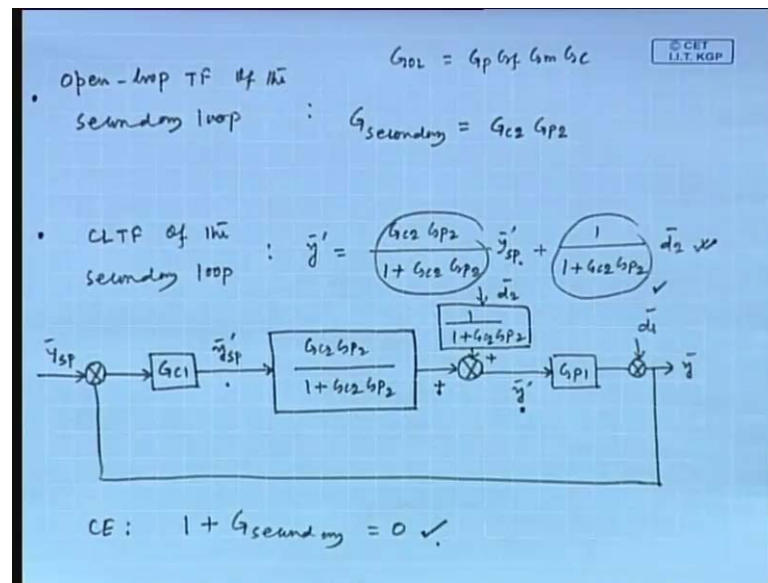 G_OL = Gp Gf Gm Gc
© CET
I.I.T. KGP
• Open-loop TF of the
secondary loop : G_secondary = Gc2 Gp2
• CLTF of the
secondary loop : ȳ' = Gc2 Gp2 / (1 + Gc2 Gp2) ȳ'sp + 1 / (1 + Gc2 Gp2) d̄2
d̄2
1 / (1 + Gc2 Gp2)
d̄1
ȳsp
Gc1
ȳ'sp
Gc2 Gp2 / (1 + Gc2 Gp2)
+
+
ȳ'
Gp1
ȳ
CE : 1 + G_secondary = 0 ✓